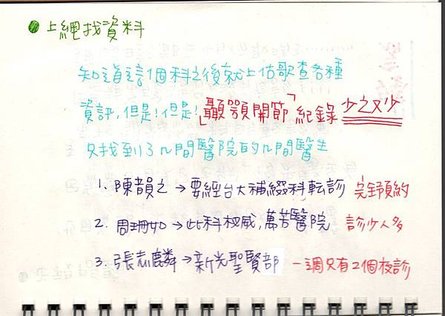 ●上網找資料
知道這個科之後就上估歌查各種
資訊,但是!但是!「顳顎關節」紀錄少之又少
只找到了几間醫院的几間醫生
1. 陳韻之→要經台大補綴科転診 完全預約
2. 周珊如→此科权威,萬芳醫院 診少人多
3. 張志麟→新光聖賢部 一週只有2個夜診